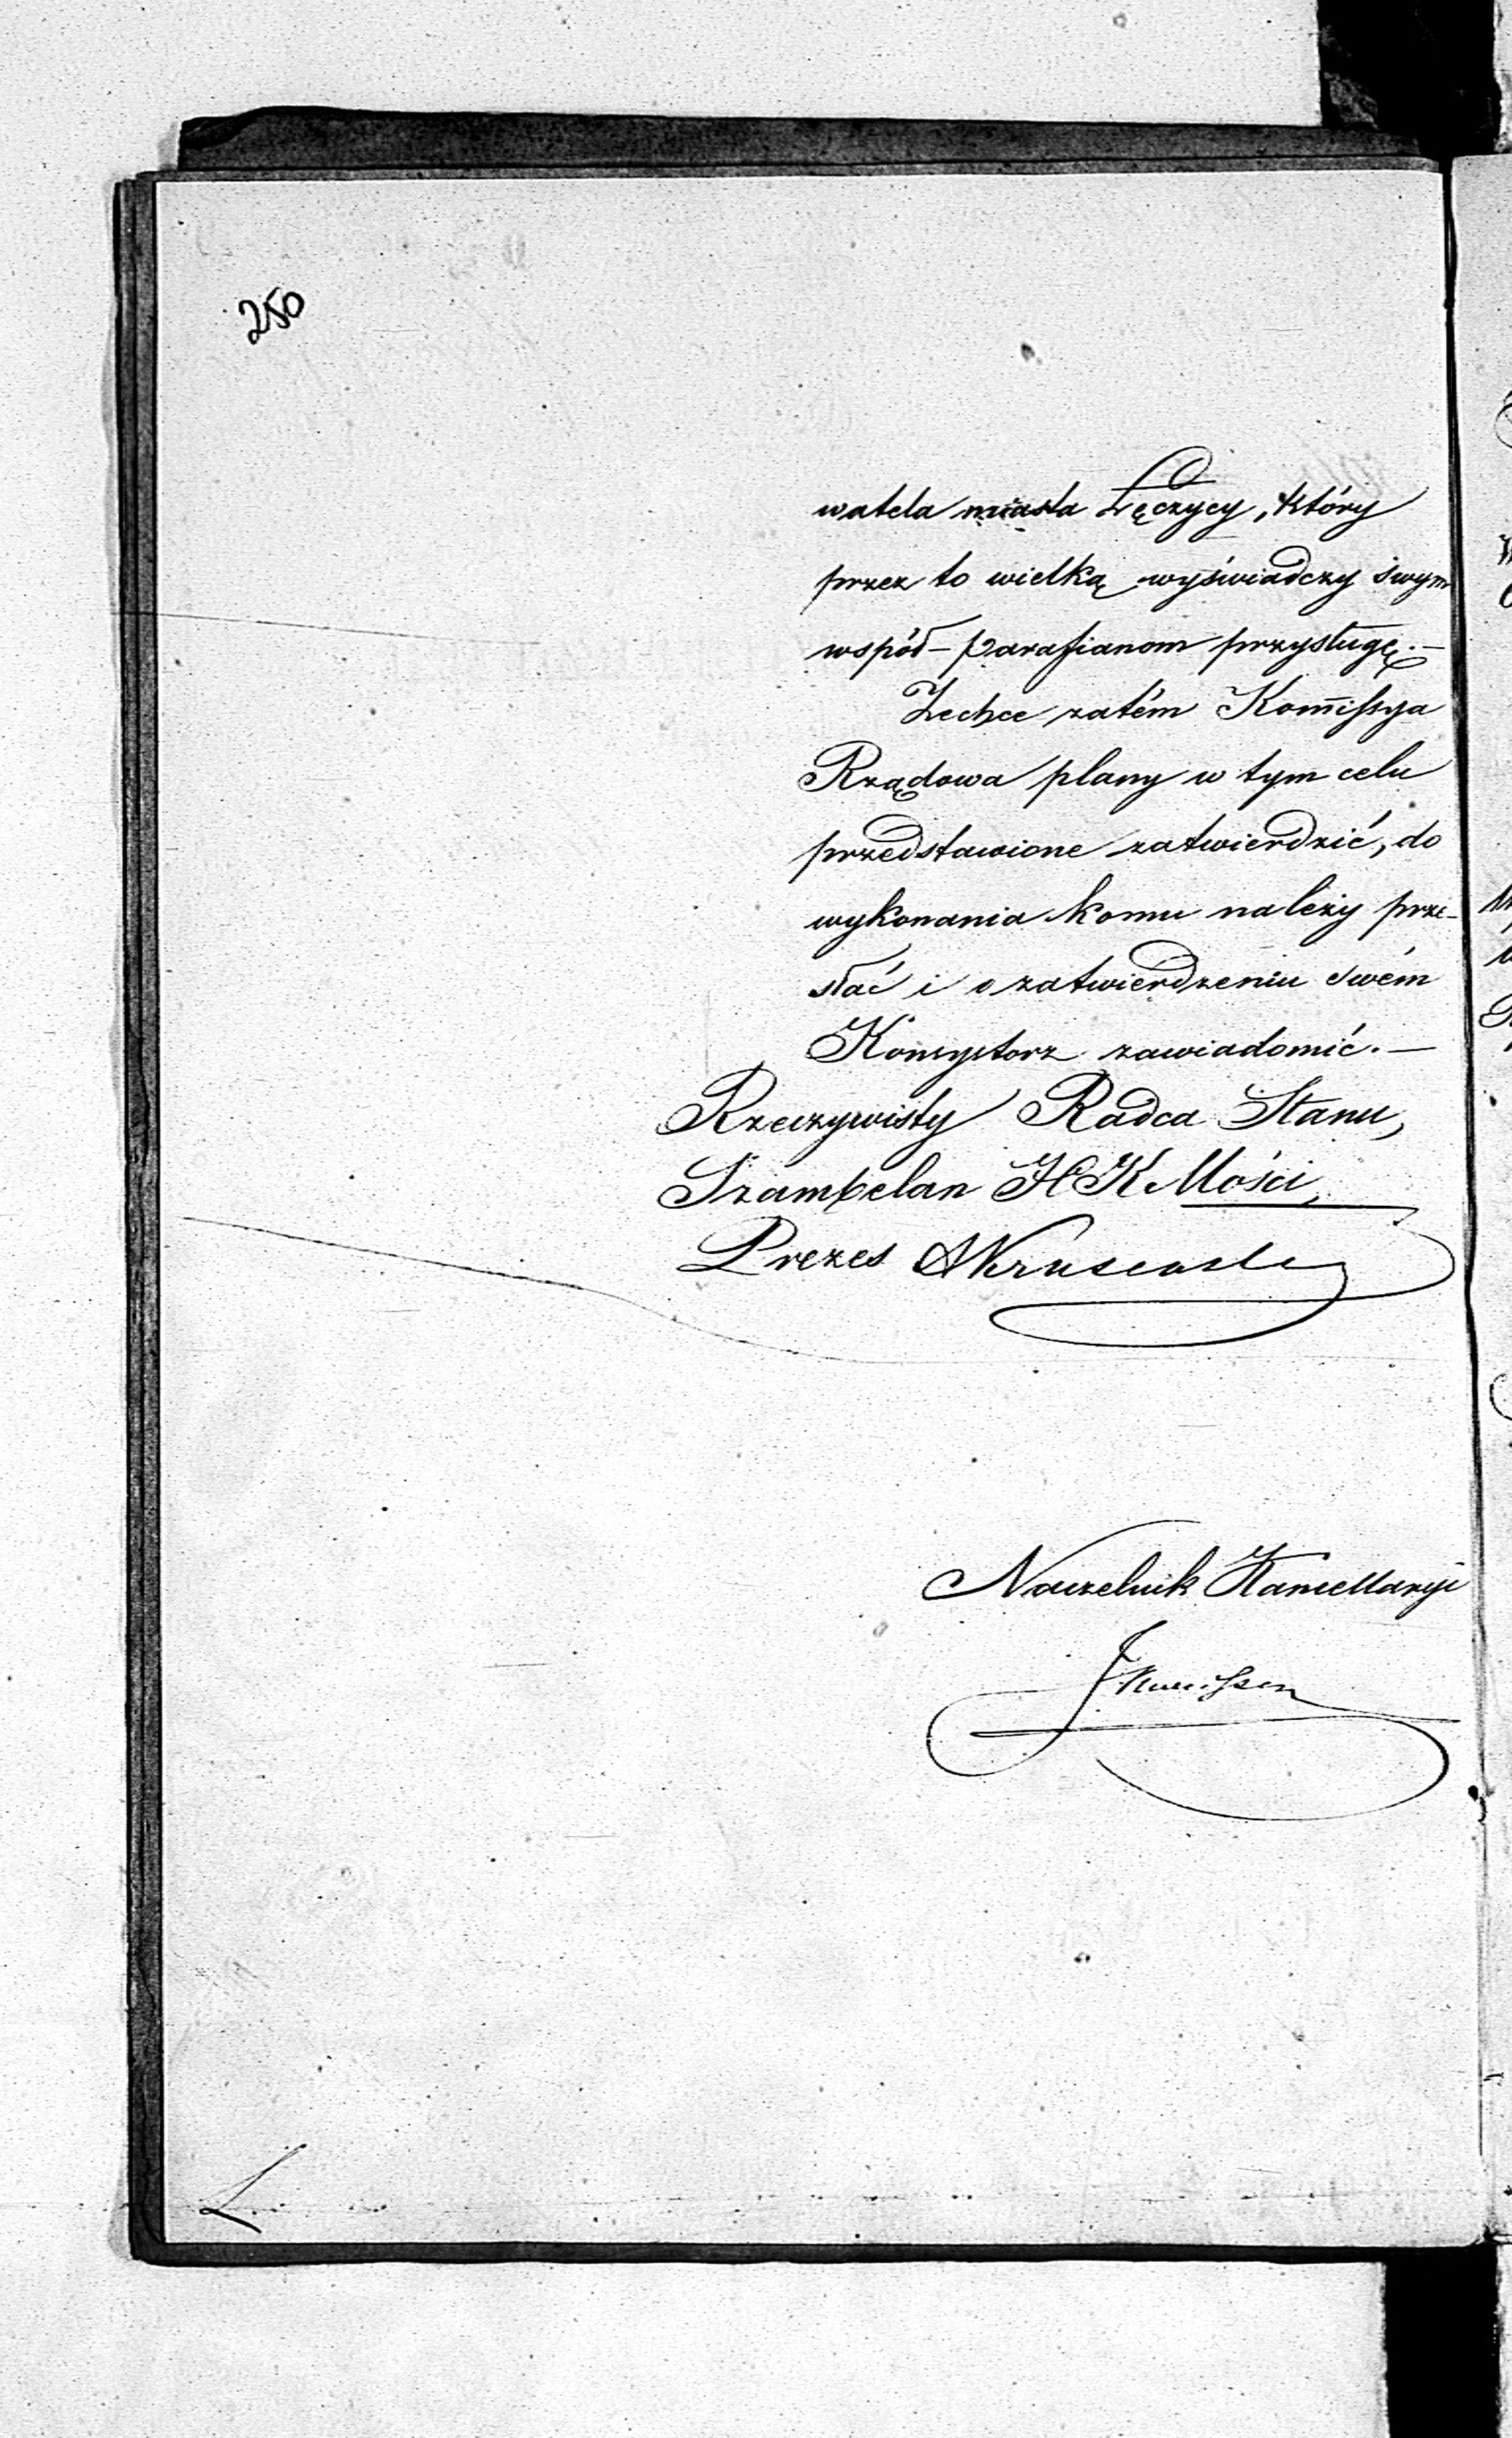 250
watela miasta Łęczycy, który
przez to wielką wyświadczy swym
współ-parafianom przysługę.—
Zechce zatém Kommissya
Rządowa plany w tym celu
przedstawione zatwierdzić, do
wykonania komu należy prze-
słać i o zatwierdzeniu swém
Konsystorz zawiadomić.—
Rzeczywisty Radca Stanu,
Szambelan JKMości,
Prezes
Naczelnik Kancellaryi